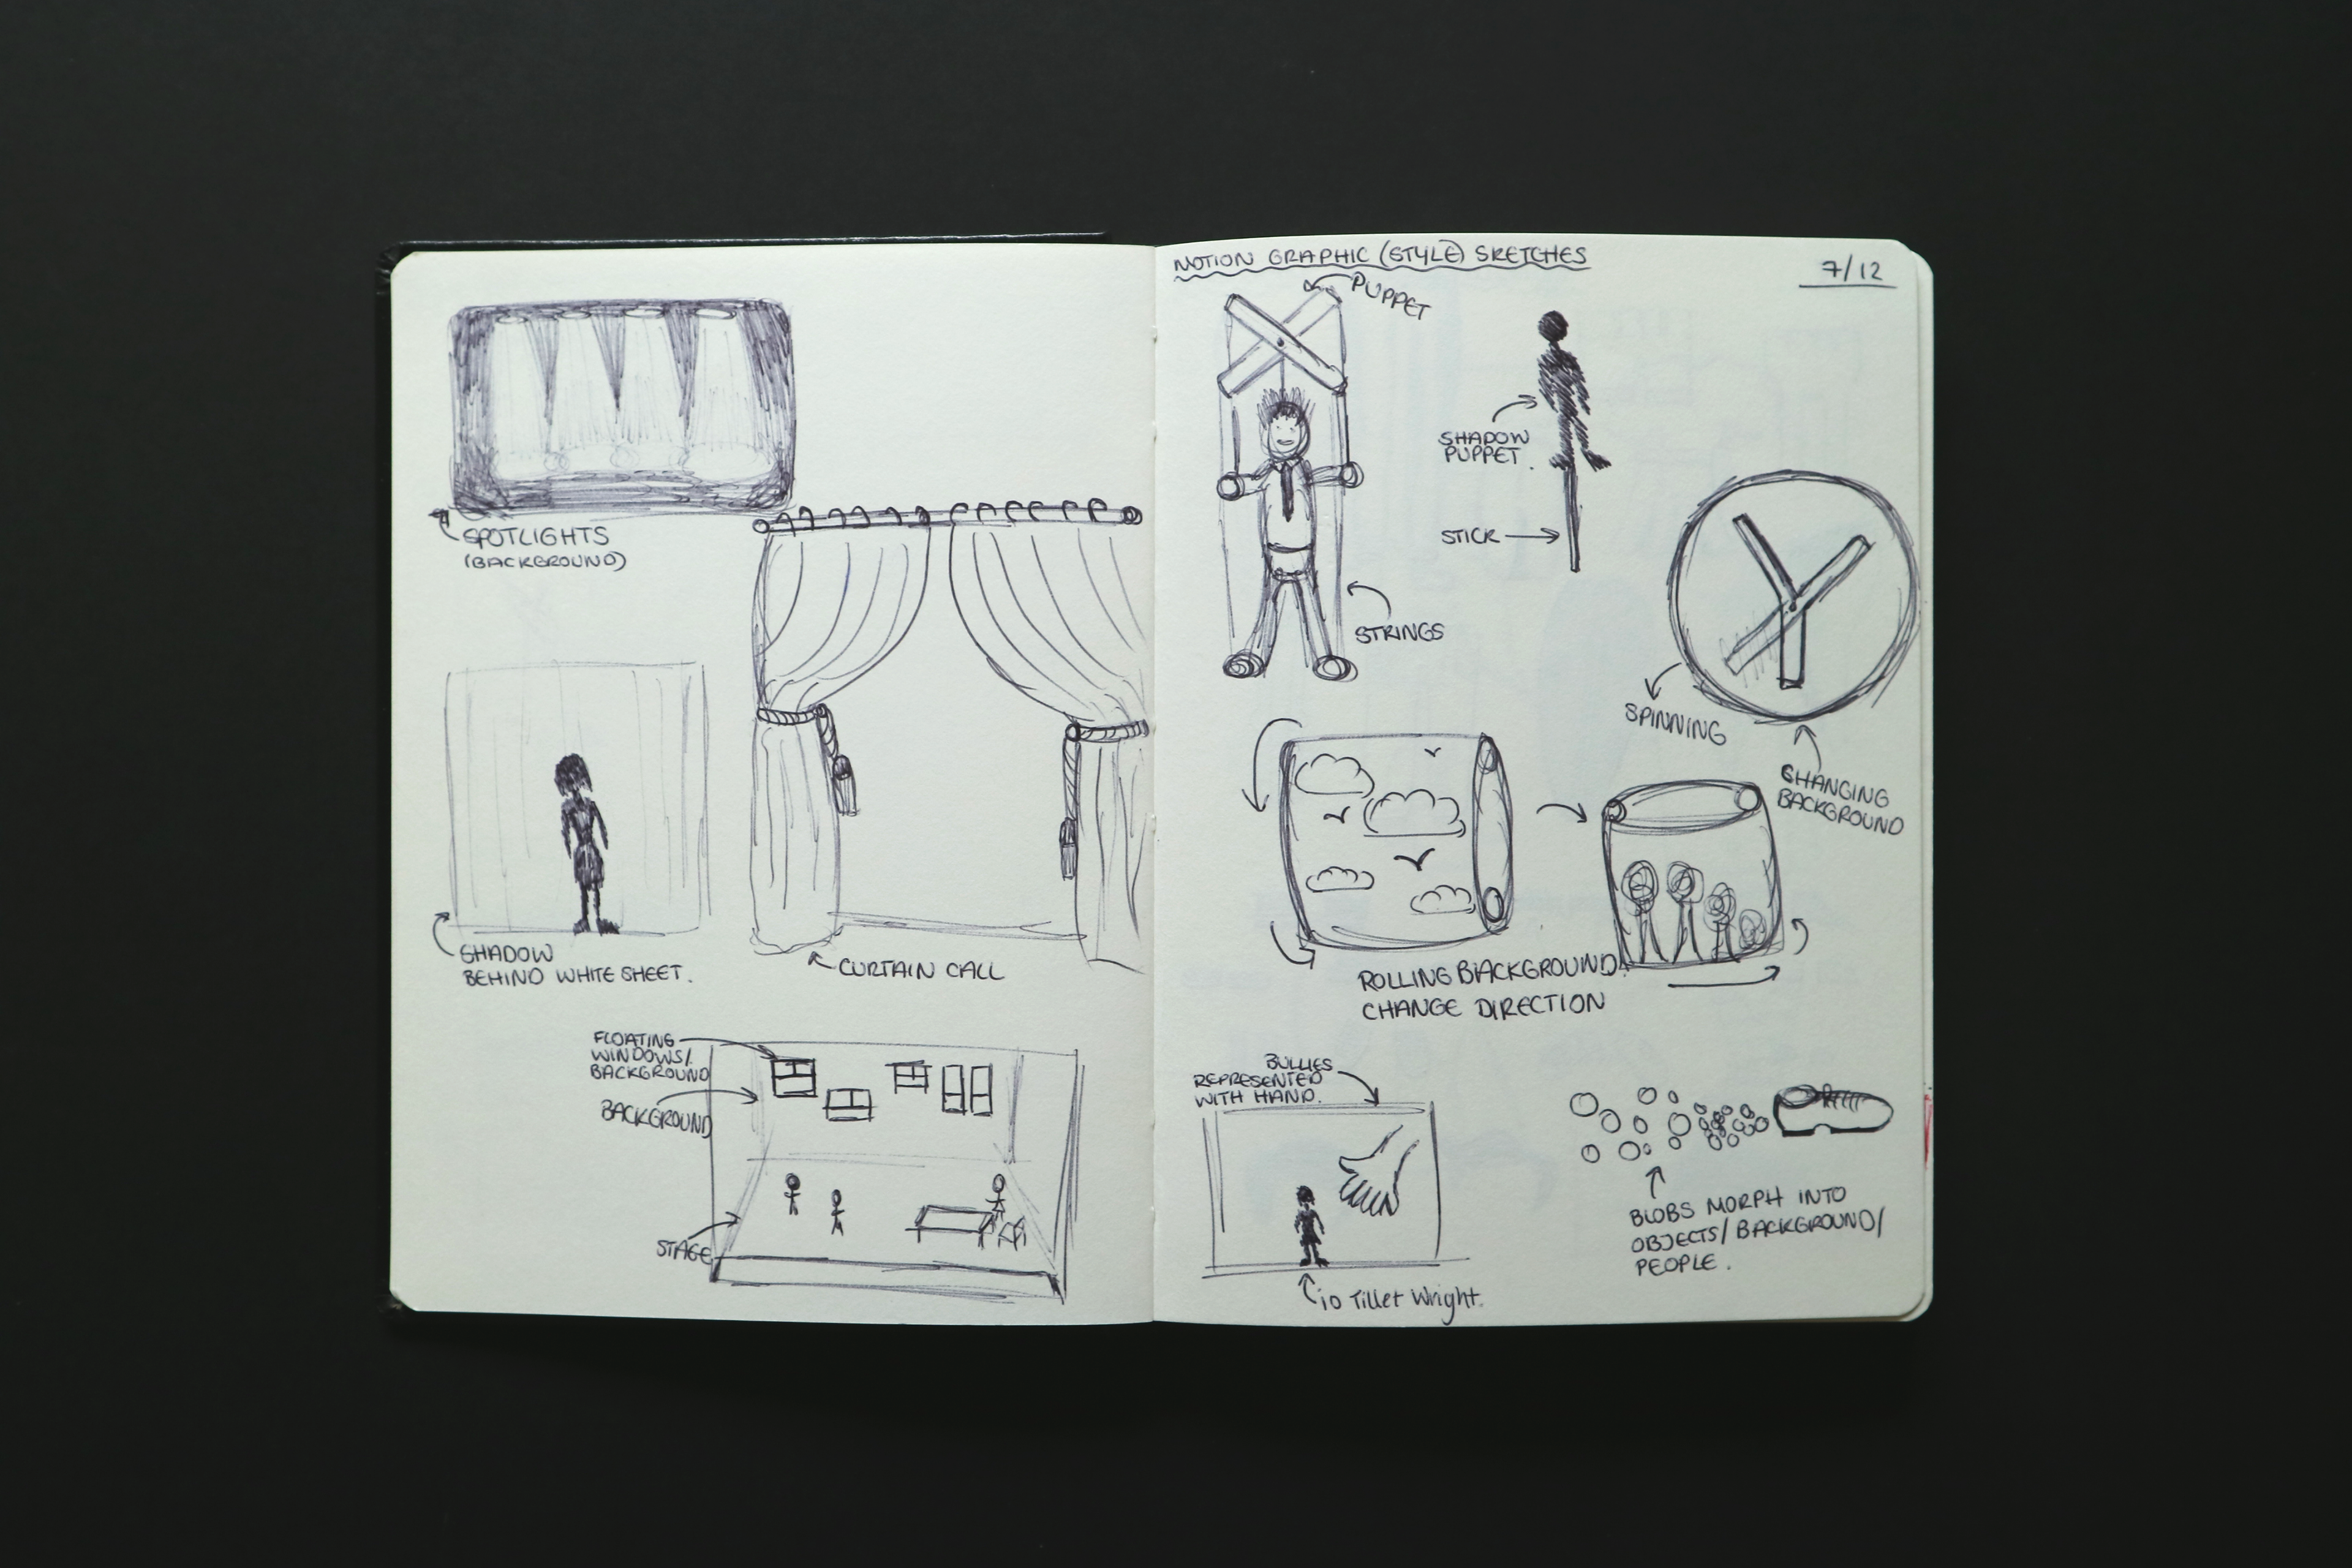 SPOTLIGHTS
(BACKGROUND)
SHADOW
BEHIND WHITE SHEET.
CURTAIN CALL
FLOATING
WINDOWS/
BACKGROUND
BACKGROUND
STAGE
MOTION GRAPHIC (STYLE) SKETCHES
7/12
PUPPET
SHADOW
PUPPET.
STICK
STRINGS
SPINNING
CHANGING
BACKGROUND
ROLLING BACKGROUND.
CHANGE DIRECTION
BULLIES
REPRESENTED
WITH HAND.
io Tillet Wright.
BLOBS MORPH INTO
OBJECTS/BACKGROUND/
PEOPLE.